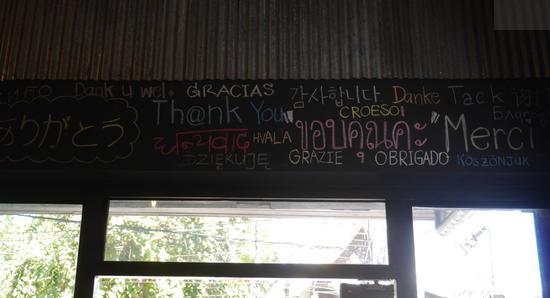 Dank u wel. GRACIAS 감사합니다 Danke Tack 谢
ありがとう Th@nk You CROESO Благода
धन्यवाद HVALA "ขอบคุณค่ะ" Merci
DZIĘKUJĘ GRAZIE OBRIGADO KÖSZÖNJUK